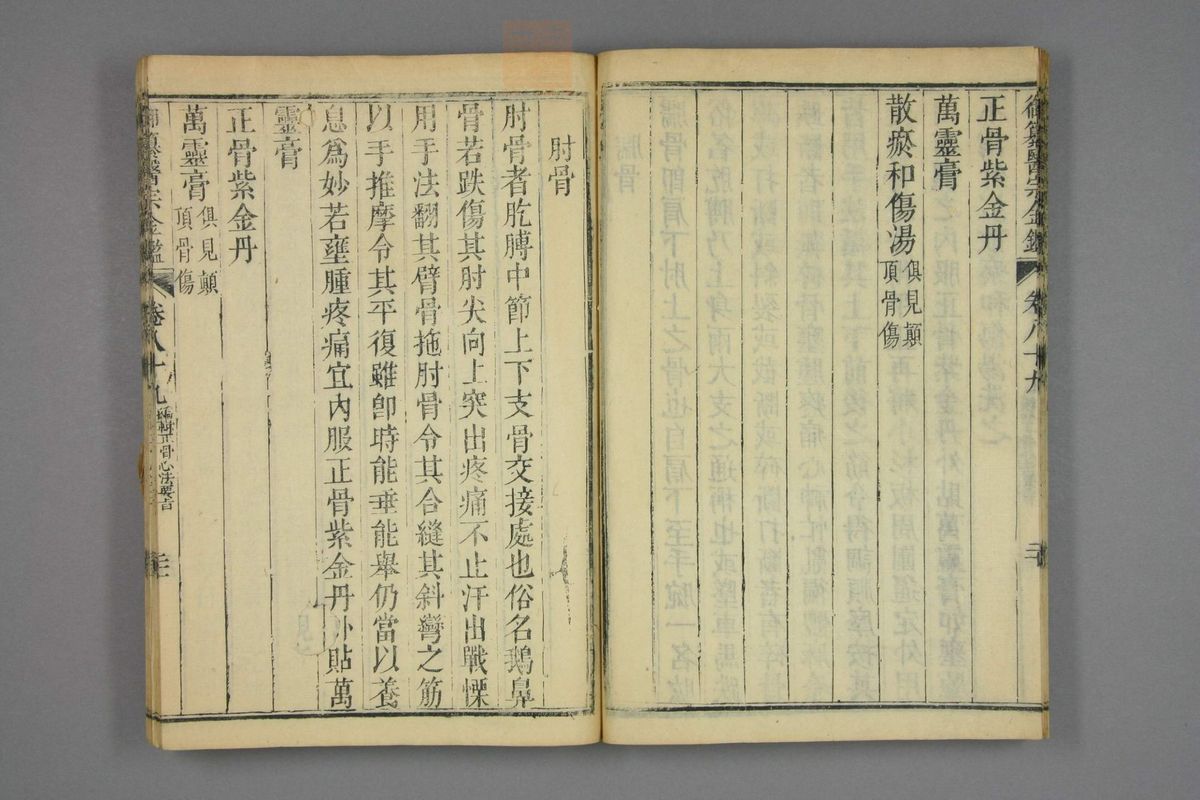 御纂醫宗金鑑 卷八十九
正骨紫金丹
萬靈膏
散瘀和傷湯 俱見顛
頂骨傷
肘骨
肘骨者胳膊中節上下支骨交接處也俗名鵝鼻
骨若跌傷其肘尖向上突出疼痛不止汗出戰慄
用手法翻其臂骨拖肘骨令其合縫其斜彎之筋
以手推摩令其平復雖即時能垂能舉仍當以養
息為妙若壅腫疼痛宜內服正骨紫金丹外貼萬
靈膏
正骨紫金丹
萬靈膏 俱見顛
頂骨傷
御纂醫宗金鑑 卷八十九 編輯正骨心法要旨